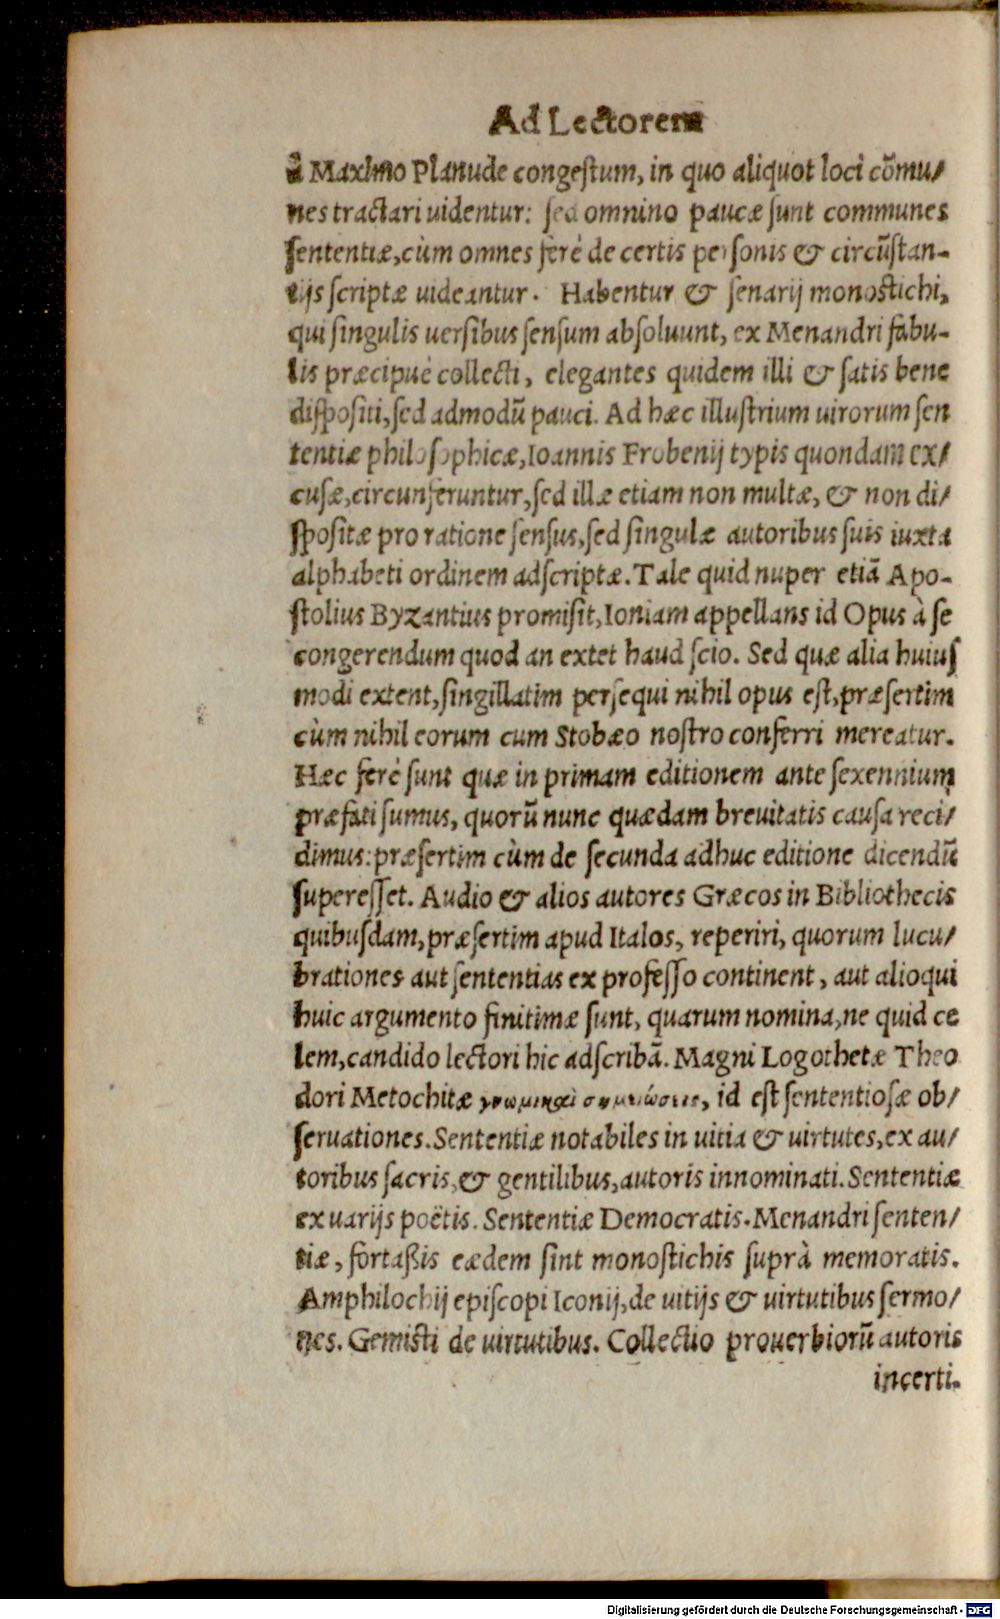 Ad Lectorem
à Maximo Planude congestum, in quo aliquot loci cõmu/
nes tractari uidentur: sed omnino paucæ sunt communes
sententiæ, cùm omnes ferè de certis personis & circũstan-
tijs scriptæ uideantur. Habentur & senarij monostichi,
qui singulis uersibus sensum absoluunt, ex Menandri fabu-
lis præcipuè collecti, elegantes quidem illi & satis bene
dispositi, sed admodũ pauci. Ad hæc illustrium uirorum sen
tentiæ philosophicæ, Ioannis Frobenij typis quondam ex/
cusæ, circunferuntur, sed illæ etiam non multæ, & non di/
spositæ pro ratione sensus, sed singulæ autoribus suis iuxta
alphabeti ordinem adscriptæ. Tale quid nuper etiã Apo-
stolius Byzantius promisit, Ioniam appellans id Opus à se
congerendum quod an extet haud scio. Sed quæ alia huius
modi extent, singillatim persequi nihil opus est, præsertim
cùm nihil eorum cum Stobæo nostro conferri mereatur.
Hæc ferè sunt quæ in primam editionem ante sexennium
præfati sumus, quorũ nunc quædam breuitatis causa reci/
dimus: præsertim cùm de secunda adhuc editione dicendũ
superesset. Audio & alios autores Græcos in Bibliothecis
quibusdam, præsertim apud Italos, reperiri, quorum lucu/
brationes aut sententias ex professo continent, aut alioqui
huic argumento finitimæ sunt, quarum nomina, ne quid ce
lem, candido lectori hic adscribã. Magni Logothetæ Theo
dori Metochitæ γνωμικαὶ σημειώσεις, id est sententiosæ ob/
seruationes. Sententiæ notabiles in uitia & uirtutes, ex au/
toribus sacris, & gentilibus, autoris innominati. Sententiæ
ex uarijs poëtis. Sententiæ Democratis. Menandri senten/
tiæ, fortaßis eædem sint monostichis suprà memoratis.
Amphilochij episcopi Iconij, de uitijs & uirtutibus sermo/
nes. Gemisti de uirtutibus. Collectio prouerbiorũ autoris
incerti.
Digitalisierung gefördert durch die Deutsche Forschungsgemeinschaft - DFG